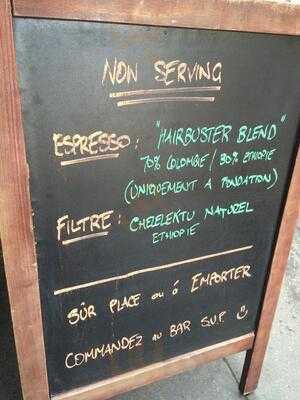 NOW SERVING
ESPRESSO: "HAIRBUSTER BLEND"
70% COLOMBIE / 30% ETHIOPIE
(UNIQUEMENT À FONDATION)
FILTRE: CHELELEKTU NATUREL
ETHIOPIE
SÛR PLACE ou à EMPORTER
COMMANDEZ au BAR S.V.P. :)